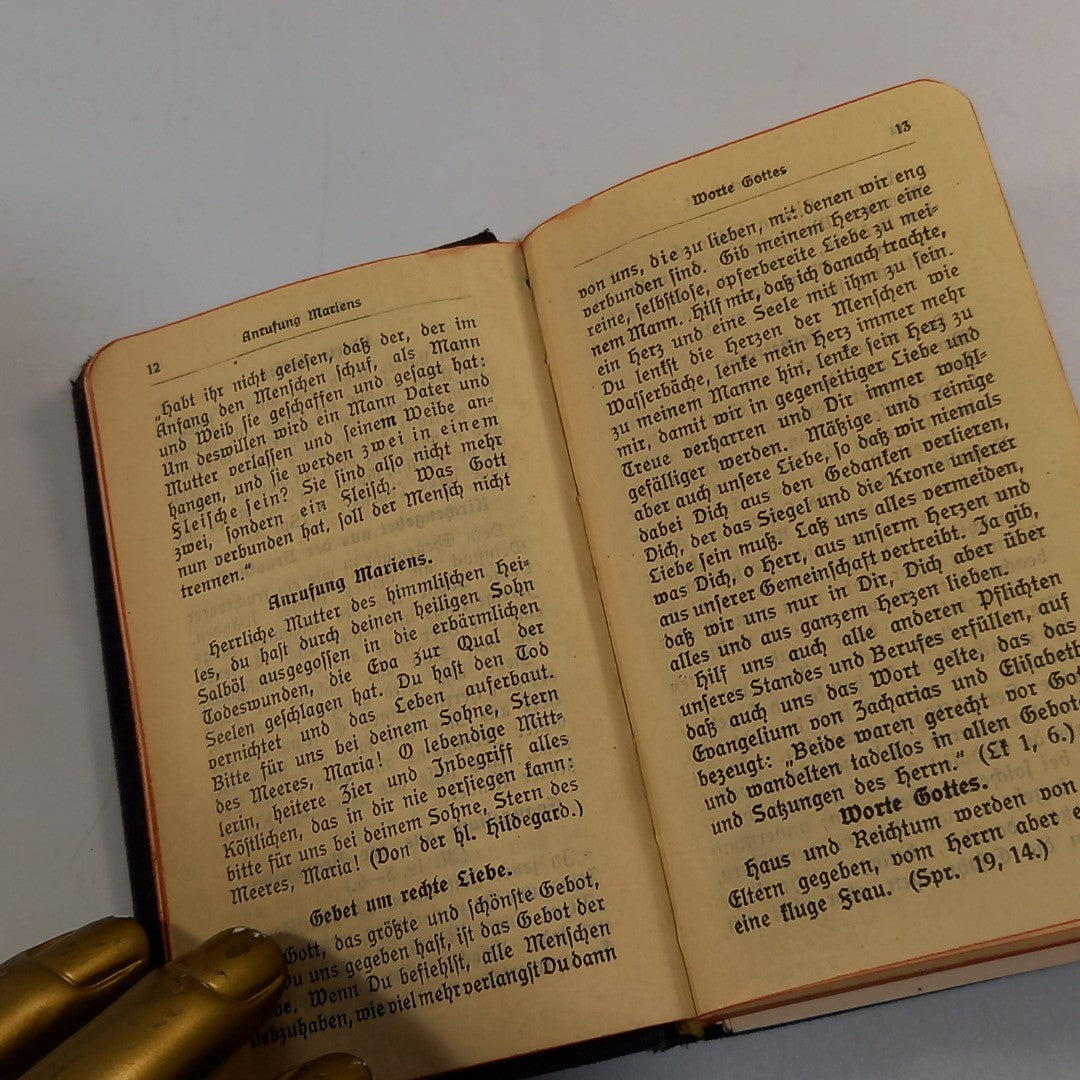 12
Anrufung Mariens
„Habt ihr nicht gelesen, daß der, der im
Anfang den Menschen schuf, als Mann
und Weib sie geschaffen und gesagt hat:
Um deswillen wird ein Mann Vater und
Mutter verlassen und seinem Weibe an-
hangen, und sie werden zwei in einem
Fleische sein? Sie sind also nicht mehr
zwei, sondern ein Fleisch. Was Gott
nun verbunden hat, soll der Mensch nicht
trennen.“
Anrufung Mariens.
Herrliche Mutter des himmlischen Hei-
les, du hast durch deinen heiligen Sohn
Salböl ausgegossen in die erbärmlichen
Todeswunden, die Eva zur Qual der
Seelen geschlagen hat. Du hast den Tod
vernichtet und das Leben auferbaut.
Bitte für uns bei deinem Sohne, Stern
des Meeres, Maria! O lebendige Mitt-
lerin, heitere Zier und Inbegriff alles
Köstlichen, das in dir nie versiegen kann:
bitte für uns bei deinem Sohne, Stern des
Meeres, Maria! (Von der hl. Hildegard.)
Gebet um rechte Liebe.
Gott, das größte und schönste Gebot,
Du uns gegeben hast, ist das Gebot der
Wenn Du befiehlst, alle Menschen
liebzuhaben, wie viel mehr verlangst Du dann
Worte Gottes
13
von uns, die zu lieben, mit denen wir eng
verbunden sind. Gib meinem Herzen eine
reine, selbstlose, opferbereite Liebe zu mei-
nem Mann. Hilf mir, daß ich danach trachte,
ein Herz und eine Seele mit ihm zu sein.
Du lenkst die Herzen der Menschen wie
Wasserbäche, lenke mein Herz immer mehr
zu meinem Manne hin, lenke sein Herz zu
mir, damit wir in gegenseitiger Liebe und
Treue verharren und Dir immer wohl-
gefälliger werden. Mäßige und reinige
aber auch unsere Liebe, so daß wir niemals
dabei Dich aus den Gedanken verlieren,
Dich, der das Siegel und die Krone unserer
Liebe sein muß. Laß uns alles vermeiden,
was Dich, o Herr, aus unserm Herzen und
aus unserer Gemeinschaft vertreibt. Ja gib,
daß wir uns nur in Dir, Dich aber über
alles und aus ganzem Herzen lieben.
Hilf uns auch alle anderen Pflichten
unseres Standes und Berufes erfüllen, auf
daß auch uns das Wort gelte, das das
Evangelium von Zacharias und Elisabeth
bezeugt: „Beide waren gerecht vor Got
und wandelten tadellos in allen Gebote
und Satzungen des Herrn.“ (Lk 1, 6.)
Worte Gottes.
Haus und Reichtum werden von
Eltern gegeben, vom Herrn aber e
eine kluge Frau. (Spr. 19, 14.)